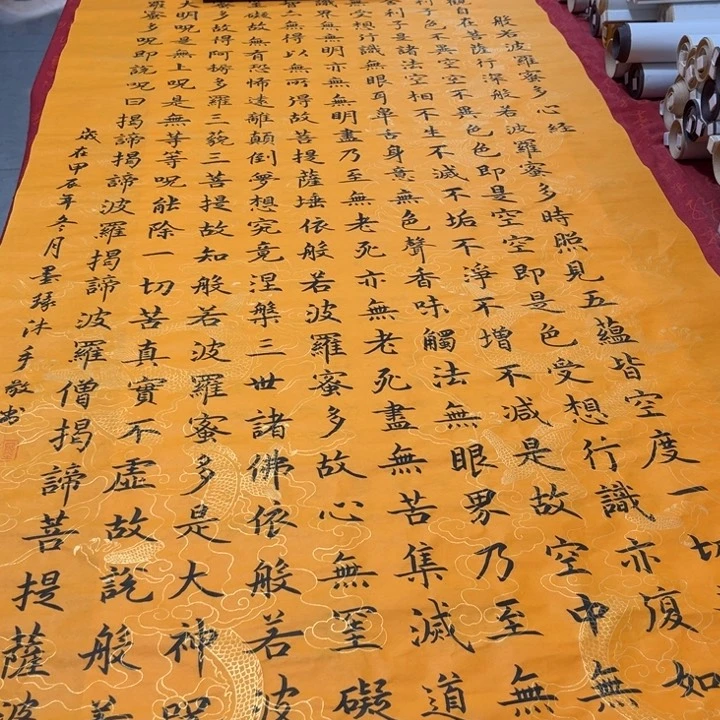 般若波羅蜜多心經
自在菩薩行深般若波羅蜜多時照見五蘊皆空度一切
色不異空空不異色色即是空空即是色受想行識亦復如
利子是諸法空相不生不滅不垢不淨不增不減是故空中無
無受想行識無眼耳鼻舌身意無色聲香味觸法無眼界乃至無
識界無無明亦無無明盡乃至無老死亦無老死盡無苦集滅道
無得以無所得故菩提薩埵依般若波羅蜜多故心無罣礙
罣礙故無有恐怖遠離顛倒夢想究竟涅槃三世諸佛依般若波
多故得阿耨多羅三藐三菩提故知般若波羅蜜多是大神呪
大明呪是無上呪是無等等呪能除一切苦真實不虛故說般若
羅蜜多呪即說呪曰揭諦揭諦波羅揭諦波羅僧揭諦菩提薩婆
歲在甲辰年冬月墨緣沐手敬書